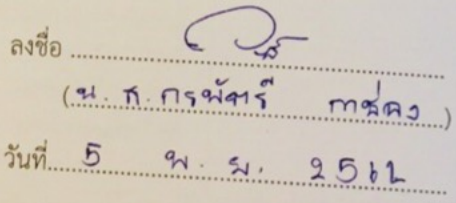 ลงชื่อ
(น.ส.กรพัตรี
วันที่ 5 พ.ย. 2562